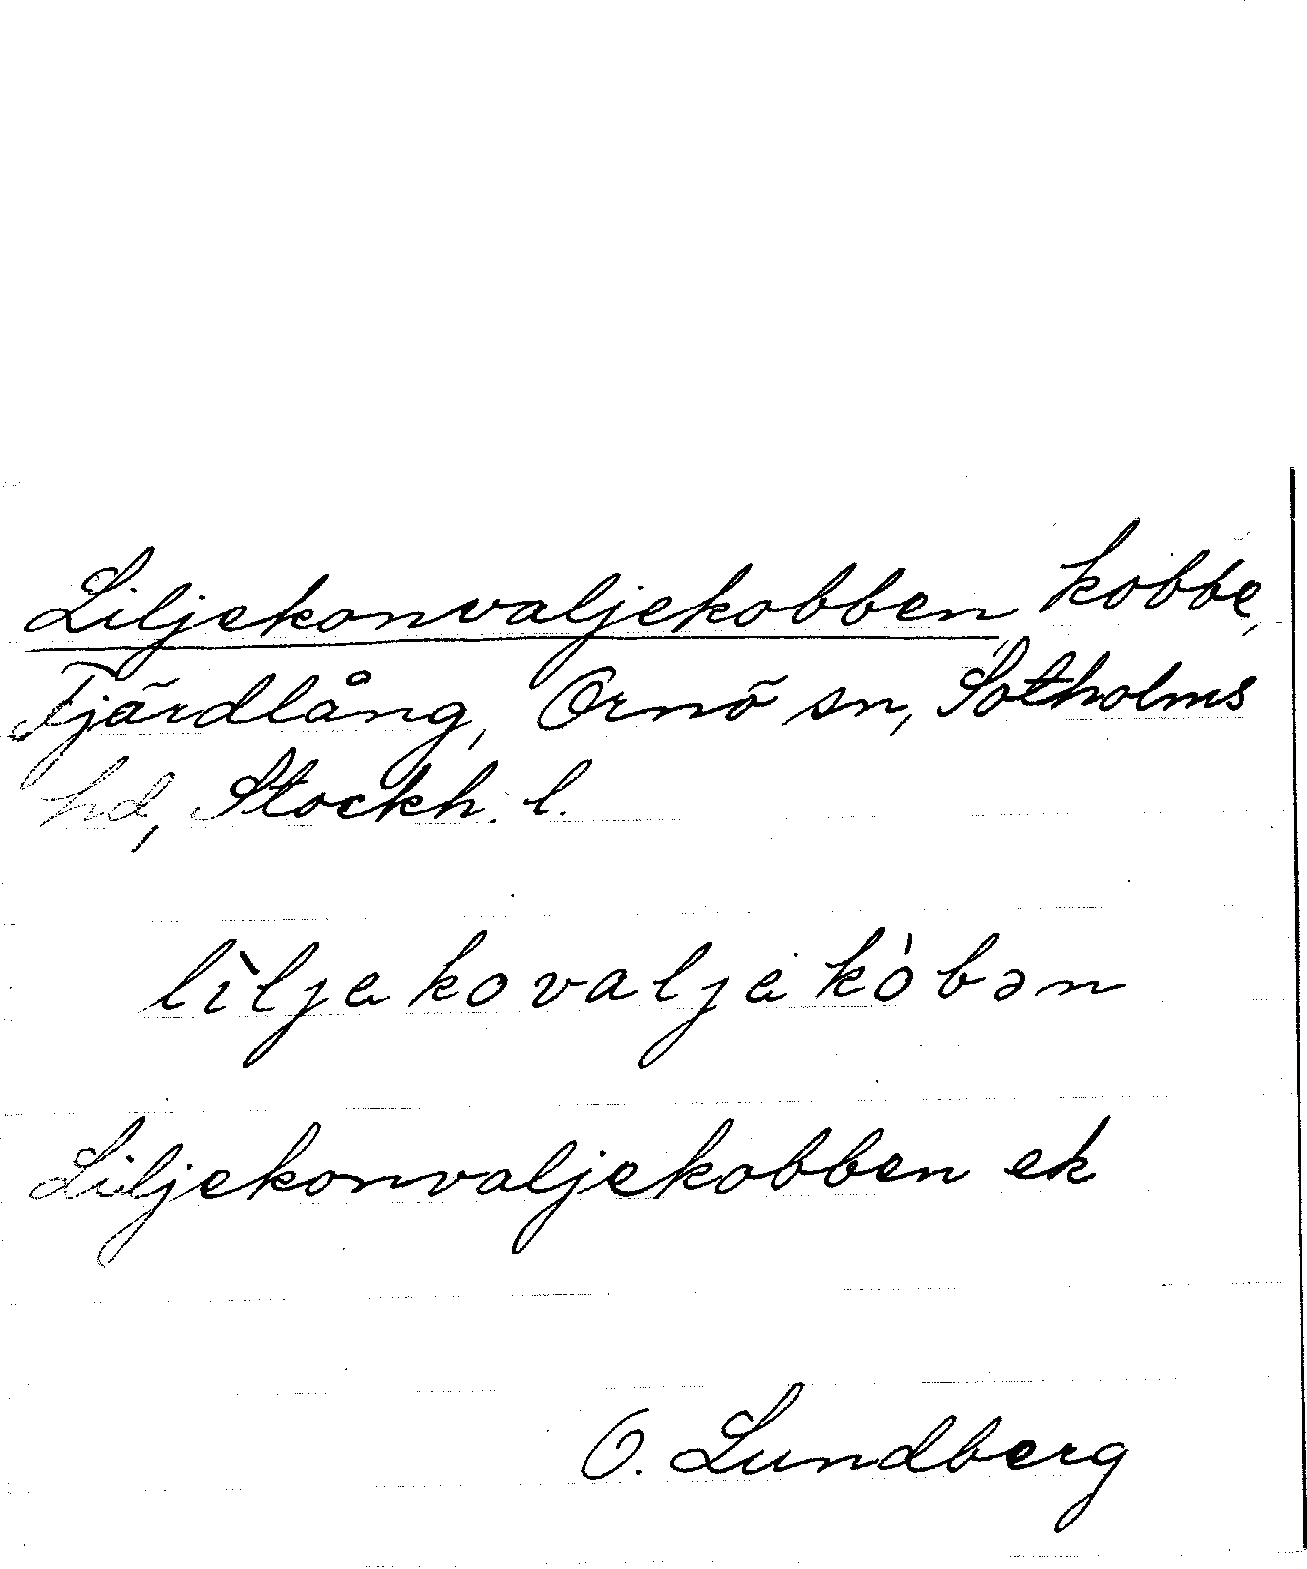 Liljekonvaljekobben kobbe,
Fjärdlång, Ornö sn, Sotholms
hd, Stockh. l.
lìljekovaljekȯ́bən
Liljekonvaljekobben ek
O. Lundberg